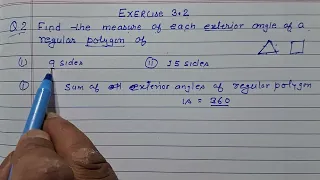 EXERCISE 3.2
Q.2 Find the measure of each exterior angle of a
regular polygon of
(i) 9 sides (ii) 15 sides
(i) Sum of all exterior angles of regular polygon
is = 360